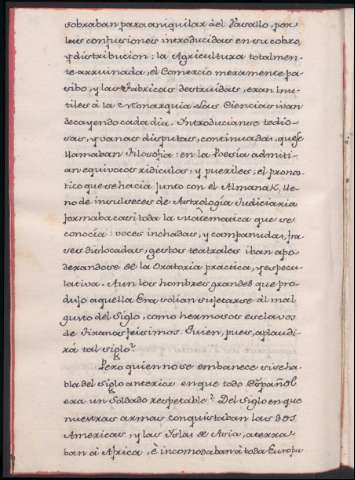 sobraban para aniquilar à el Vasallo, por
las confusiones introducidas en su cobro,
y distribucion: la Agricultura totalmen-
te arruinada, el Comercio meramente pa-
sibo, y las Fabricas destruidas, eran inu-
tiles à la Monarquia. Las Ciencias ivan
decayendo cada dia. Introducianse tedio-
sas, y vanas disputas, continuadas, que se
llamaban Filosofia: en la Poesia admiti-
an equivocos ridiculos, y pueriles; el prono-
tico que se hacia junto con el Almanak, lle-
no de insulseces de Astrologia Judiciaria
formaba casi toda la Matematica que se
conocia: voces inchadas, y campanudas, fra-
ses dislocadas, gestos teatrales iban apo-
derandose de la Oratoria practica, y especu-
lativa. Aun los hombres grandes que pro-
dujo aquella Era solian sujetarse al mal
gusto del Siglo, como hermosos esclavos
de tiranos feisimos. Quien, pues, aplaudi-
rá tal siglo?
Pero quien no se embanece si se ha-
bla del Siglo anterior en que todo Español
era un Soldado respetable? Del Siglo en que
nuestras armas conquistaban las dos
Americas, y las Yslas de Asia, aterra-
ban à Africa, è incomodaban à toda Europa